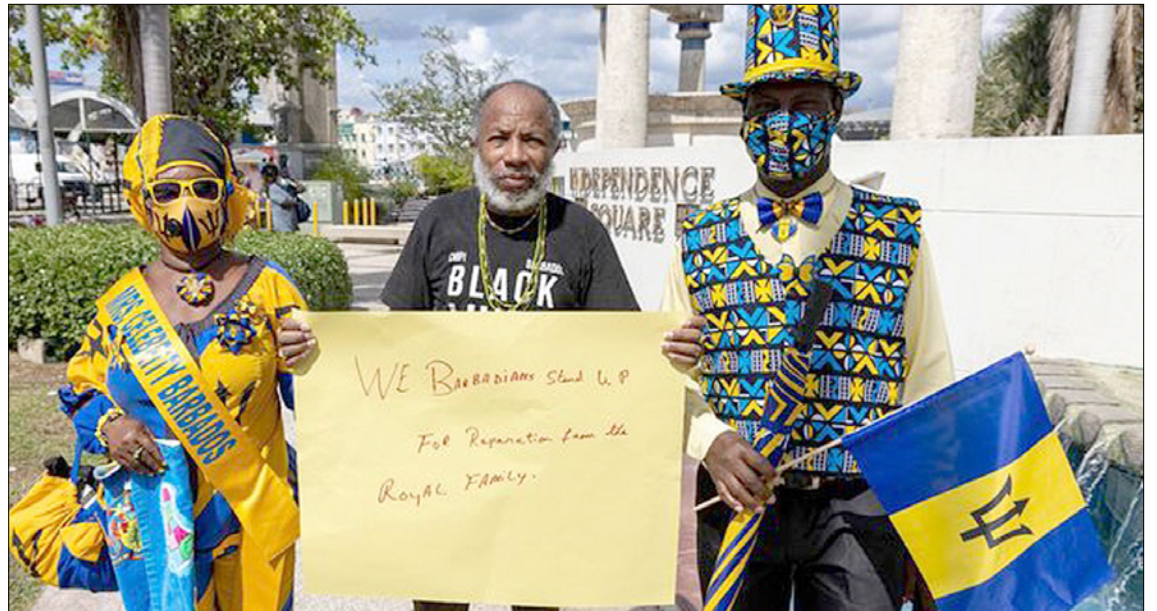 INDEPENDENCE
SQUARE
BLACK
MRS. CELEBRITY BARBADOS
WE BARBADIANS Stand UP
FOR Reparation from the
ROYAL FAMILY.